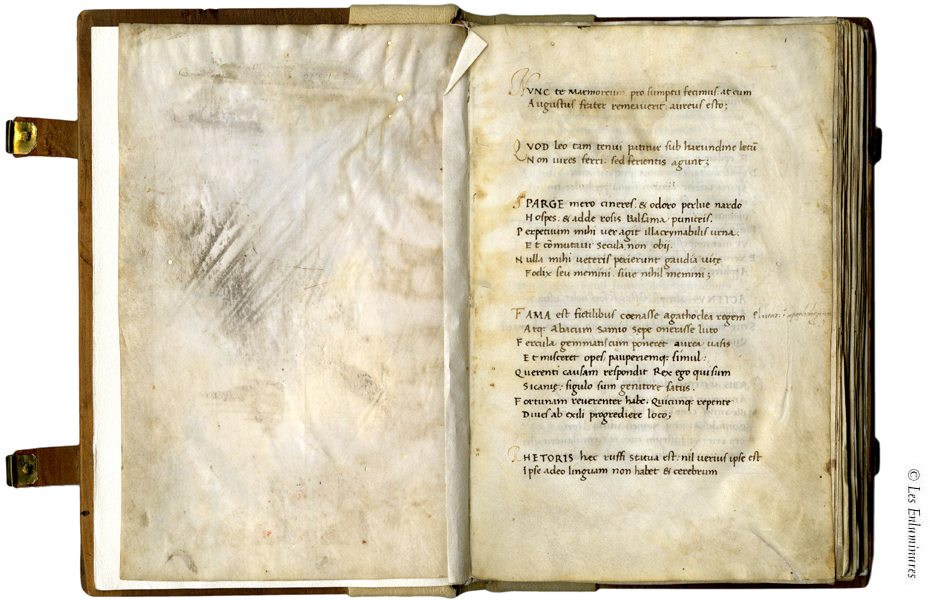 NVNC te Marmoreum pro sumptu fecimus at cum
Augustus frater remeauerit aureus esto;
QVOD leo tam tenui patitur sub harundine letū
Non uires ferri: sed ferientis agunt;
SPARGE mero cineres. & odoro perlue nardo
Hospes. & adde rosis Balsama puniceis.
Perpetuum mihi uer agit illacrymabilis urna.
Et cōmutaui secula non obij.
Nulla mihi ueteris perierunt gaudia uitę
Fodix seu memini. siue nihil memini;
FAMA est fictilibus coenasse agathoclea regem
Atq; Abacum Samio sepe onerasse luto
Fercula gemmatis cum poneret aurea uasis
Et misceret opes, pauperiemq; simul:
Querenti causam respondit Rex ego qui sum
Sicanię: figulo sum genitore satus.
Fortunam reuerenter habe. Quicunq; repente
Diues ab exili progrediere loco;
RHETORIS hec ruffi statua est. nil uerius ipse est
Ipse adeo linguam non habet & cerebrum
© Les Enluminures